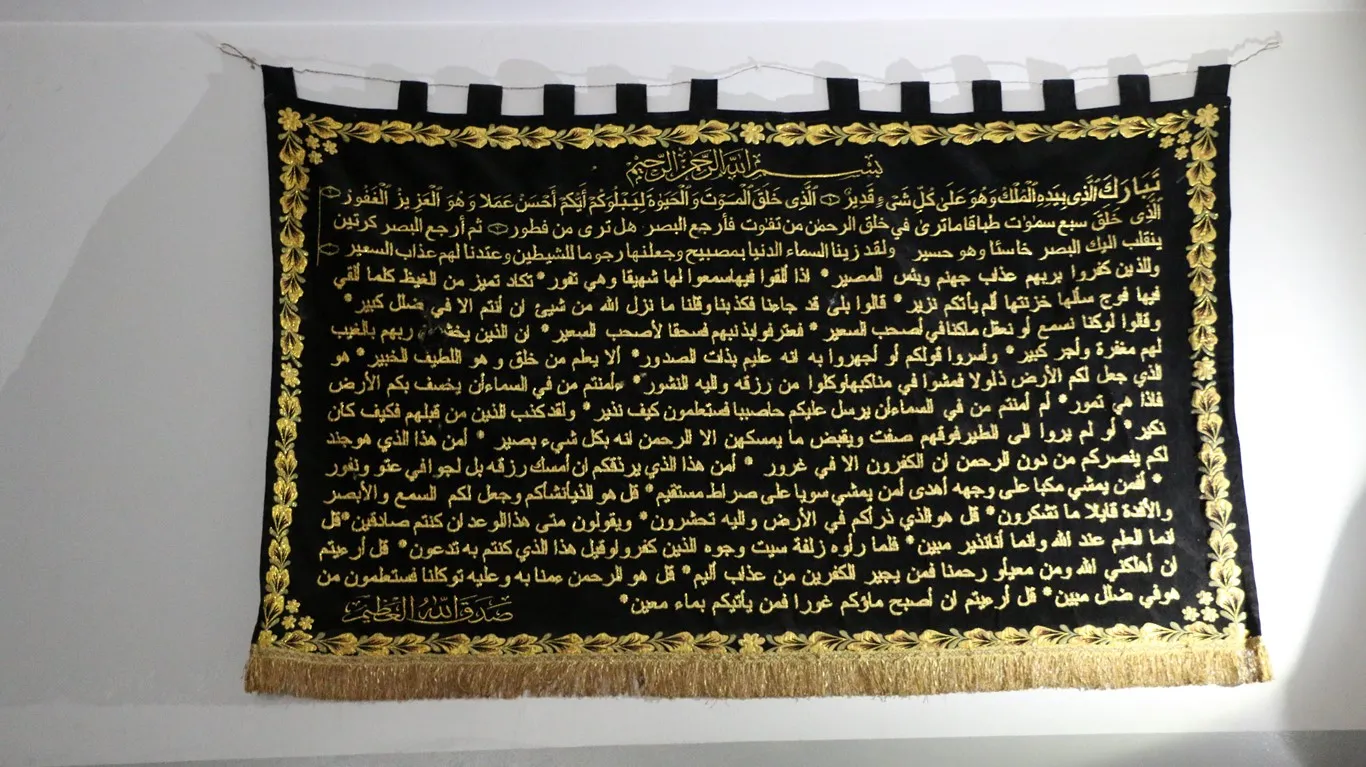 بسم الله الرحمن الرحيم
تَبَارَكَ الَّذِى بِيَدِهِ الْمُلْكُ وَهُوَ عَلَىٰ كُلِّ شَىْءٍ قَدِيرٌ ١ الَّذِى خَلَقَ الْمَوْتَ وَالْحَيَوٰةَ لِيَبْلُوَكُمْ أَيُّكُمْ أَحْسَنُ عَمَلًا وَهُوَ الْعَزِيزُ الْغَفُورُ ٢
الَّذِى خَلَقَ سبع سمٰوٰت طباقا ماترىٰ في خلق الرحمٰن من تفٰوت فأرجع البصر هل ترى من فطور ٣ ثم أرجع البصر كرتين
ينقلب اليك البصر خاسئا وهو حسير ولقد زينا السماء الدنيا بمصبيح وجعلنها رجوما للشيطين وعتدنا لهم عذاب السعير
وللذين كفروا بربهم عذاب جهنم وبئس المصير * اذا ألقوا فيهاسمعوا لها شهيقا وهي تفور * تكاد تميز من الغيظ كلما ألقي
فيها فوج سألها خزنتها ألم يأتكم نزير * قالوا بلى قد جاءنا فكذبنا وقلنا ما نزل الله من شيئ ان أنتم الا في ضلل كبير *
وقالوا لوكنا نسمع أو نعقل ماكنا في أصحب السعير * فعترفوابذنبهم فسحقا لأصحب السعير * ان الذين ربهم بالغيب
لهم مغفرة وأجر كبير * وأسروا قولكم أو أجهروا به انه عليم بذات الصدور * ألا يعلم من خلق و هو اللطيف الخبير * هو
الذي جعل لكم الأرض ذلولا فمشوا في مناكبهاوكلوا من رزقه وليه النشور * ءأمنتم من في السماءأن يخسف بكم الأرض
فاذا هي تمور * لم أمنتم من في السماءأن يرسل عليكم حاصبيا فستعلمون كيف نذير * ولقد كذب الذين من قبلهم فكيف كان
نكير * أو لم يروا الى الطيرفوقهم صفت ويقبض ما يمسكهن الا الرحمن انه بكل شيء بصير * أمن هذا الذي هوجند
لكم ينصركم من دون الرحمن ان الكفرون الا في غرور * أمن هذا الذي يرزقكم ان أمسك رزقه بل لجوا في عتو ونفور
* أفمن يمشي مكبا على وجهه أهدى أمن يمشي سويا على صراط مستقيم * قل هو الذيأنشأكم وجعل لكم السمع والأبصر
والأفدة قليلا ما تشكرون * قل هوالذي ذرأكم في الأرض وليه تحشرون * ويقولون متى هذاالوعد ان كنتم صادقين *قل
انما العلم عند الله وانما أنانذير مبين * فلما رأوه زلفة سيت وجوه الذين كفرواوقيل هذا الذي كنتم به تدعون * قل أرءيتم
ان أهلكني الله ومن معيأو رحمنا فمن يجير الكفرين من عذاب أليم * قل هو الرحمن ءمنا به وعليه توكلنا فستعلمون من
هوفي ضلل مبين * قل أرءيتم ان أصبح ماؤكم غورا فمن يأتيكم بماء معين *
صدق الله العظيم